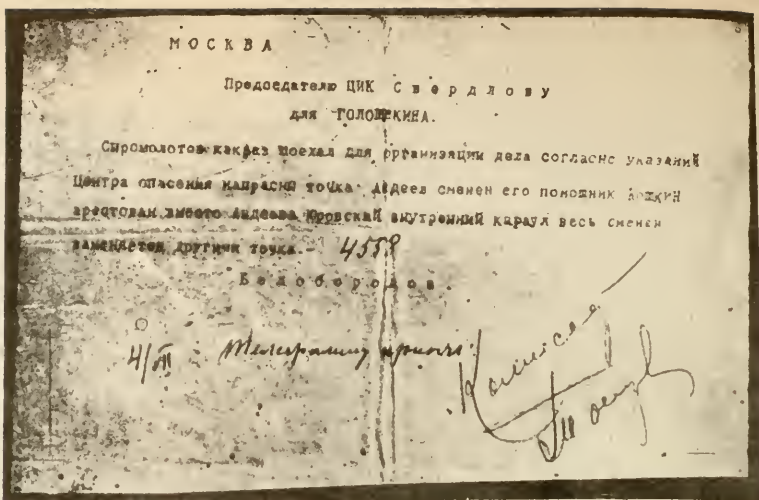 МОСКВА
Предоедателю ЦИК Свердлову
для ГОЛОЩЕКИНА.
Сыромолотов какраз поехал для организации дела согласно указаний
Центра опасения напрасны точка Авдеев сменен его помощник Мошкин
арестован вместо Авдеева Юровский внутренний караул весь сменен
заменяется другими точка.- 4558
Белобородов.
4/VII Телеграмму принял
Комиссар